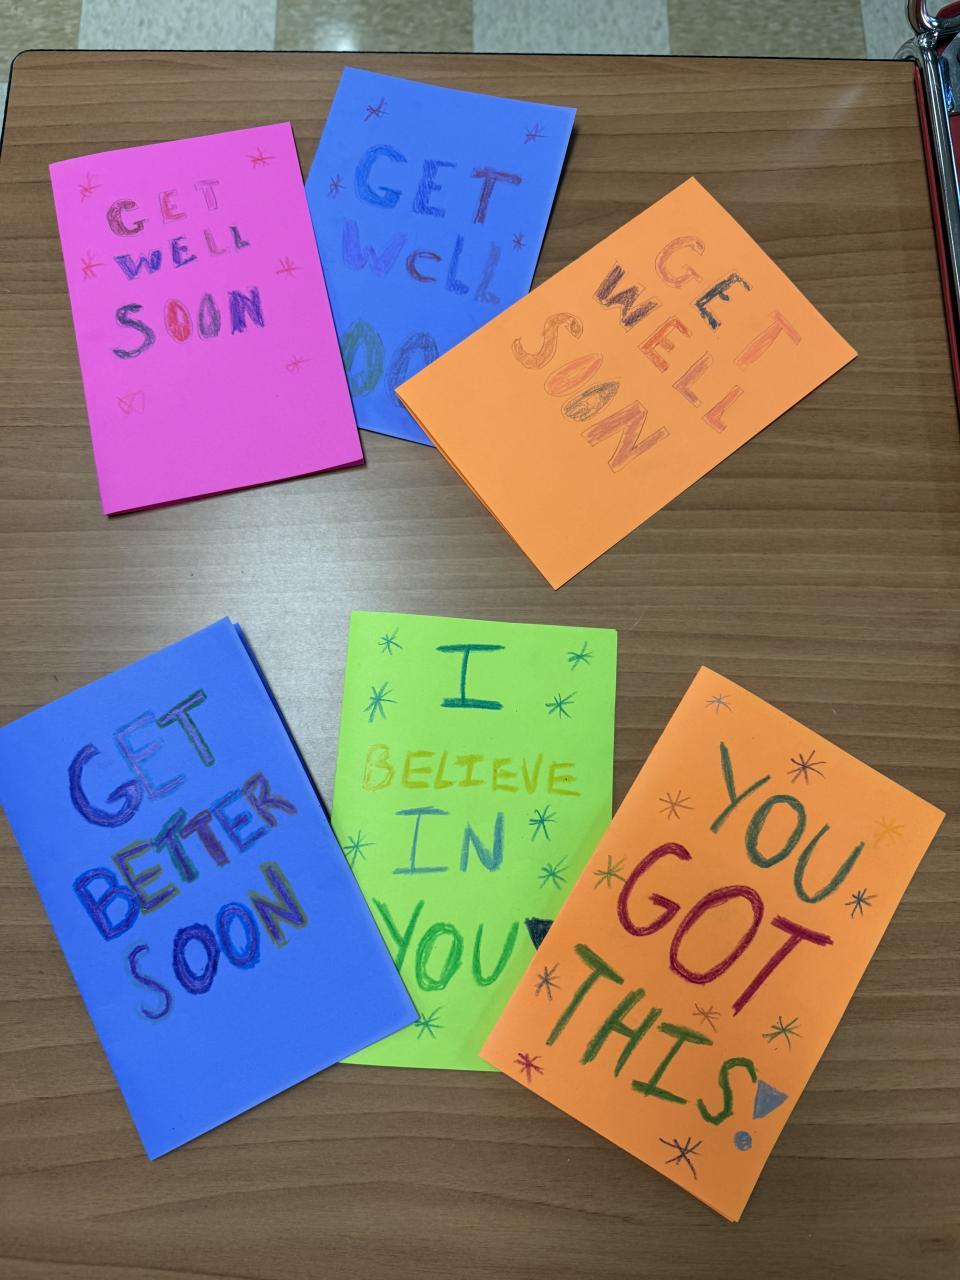 GET
WELL
SOON
GET
WELL
OO
GET
WELL
SOON
GET
BETTER
SOON
I
BELIEVE
IN
YOU
YOU
GOT
THIS!